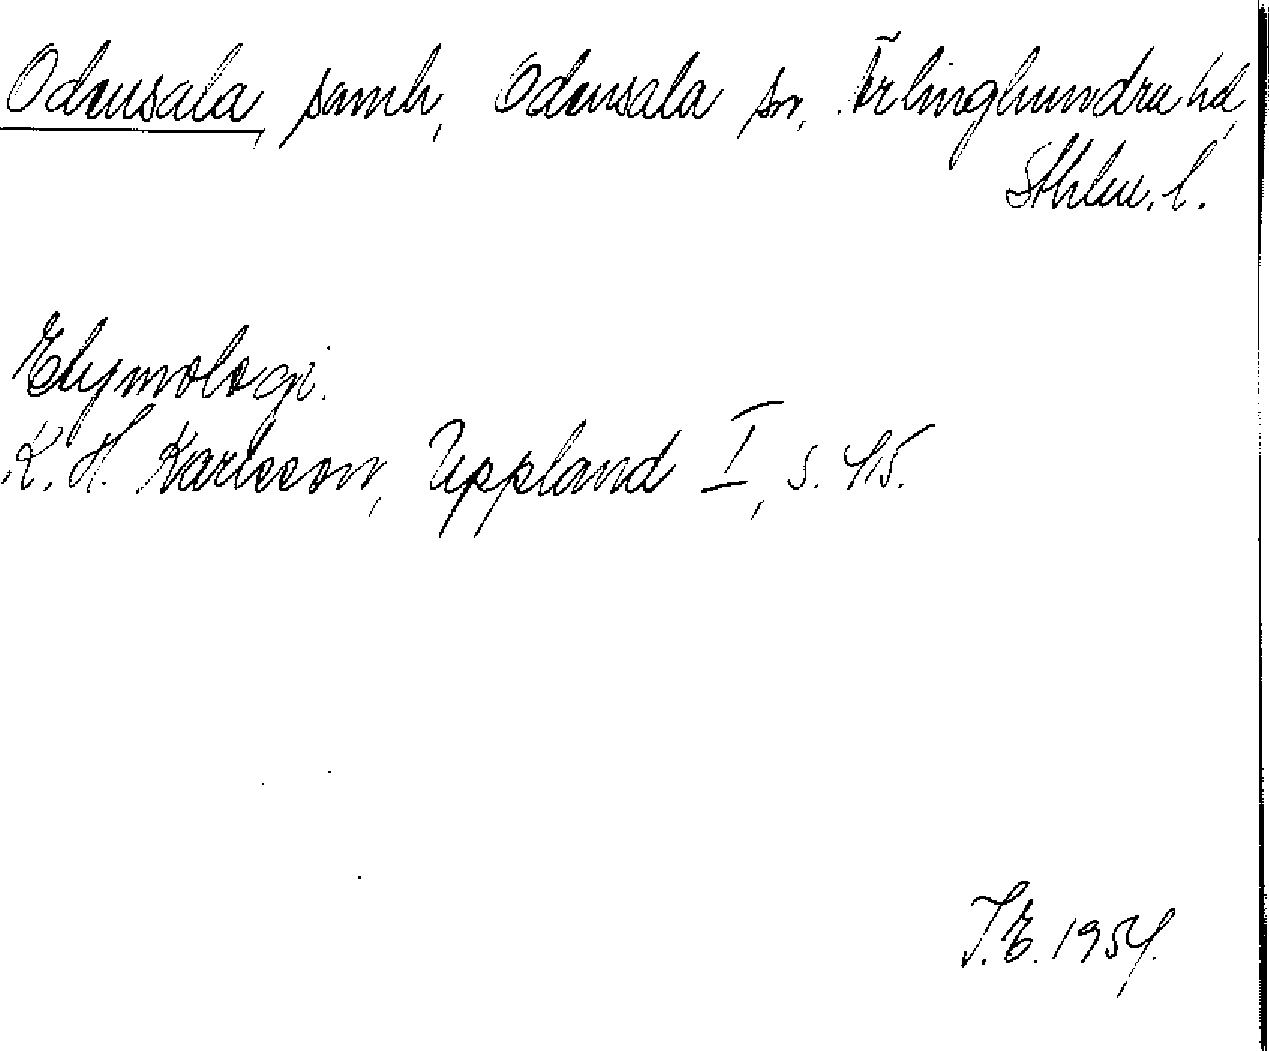 Odensala, samh, Odensala sn, Ärlinghundra hd,
Sthlm. l.
Etymologi.
K. H. Karlsson, Uppland I, s. 415.
1954.